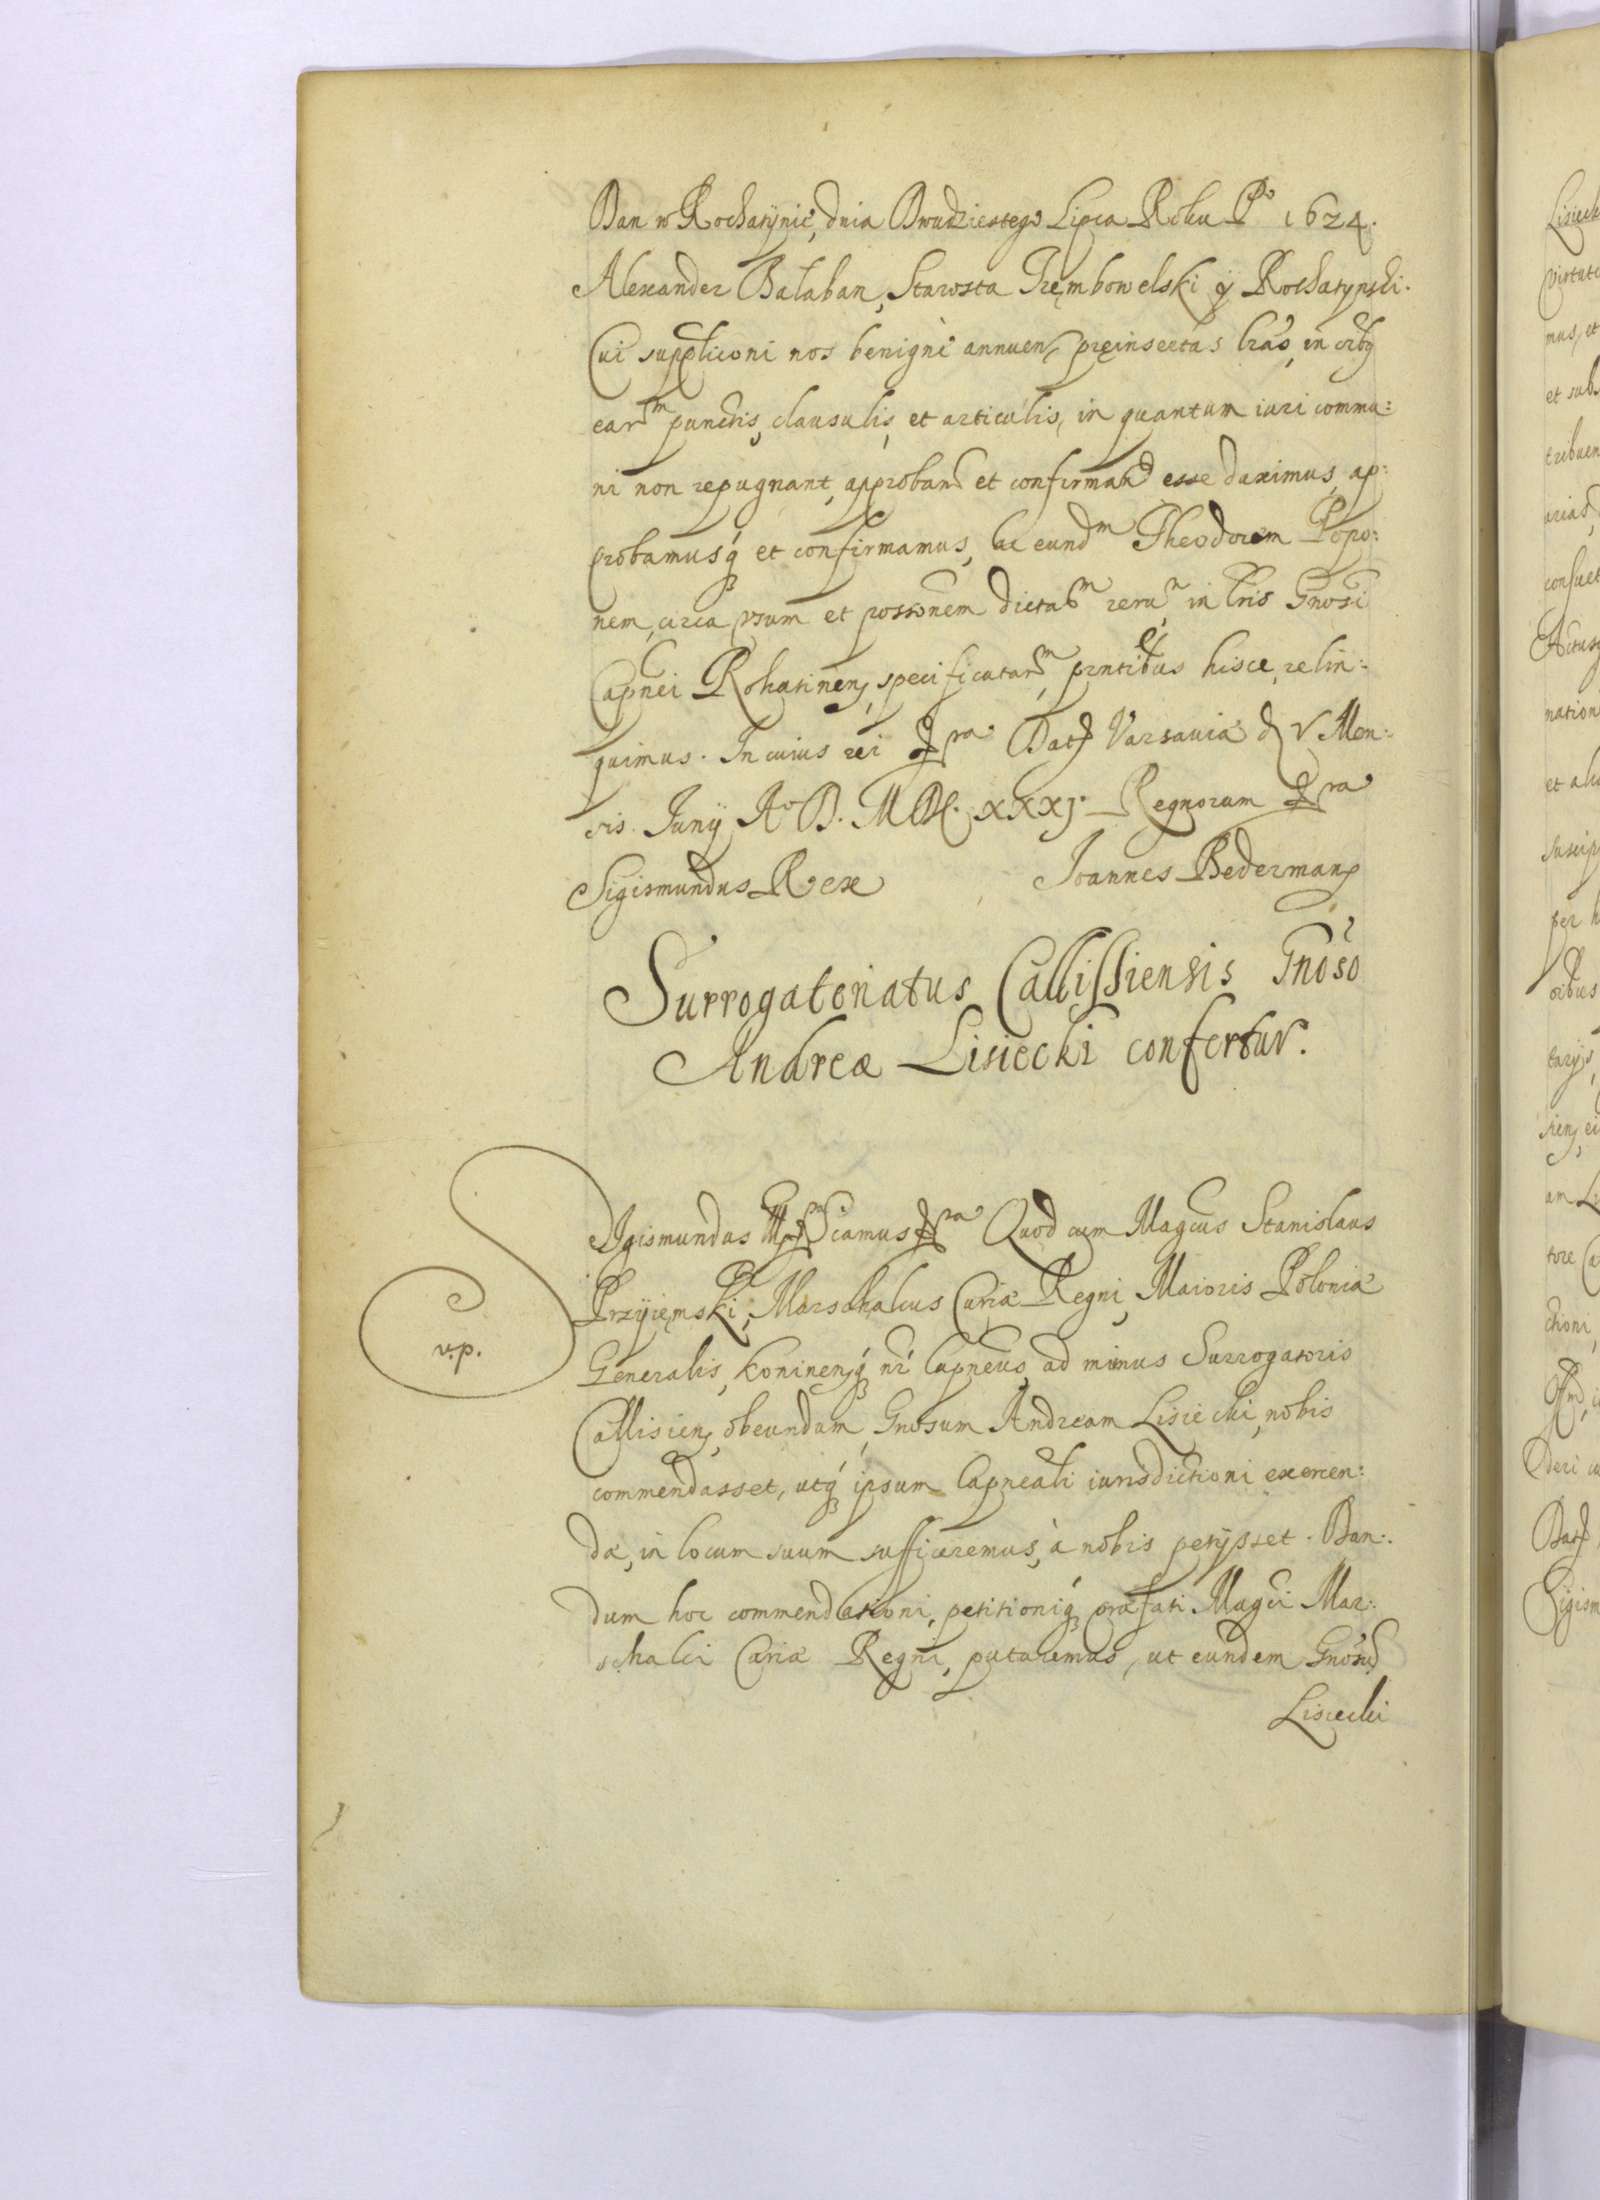 Dan w Rochatynie, dnia Dwudziestego Lipca Roku Pº 1624.
Alexander Bałaban, Starosta Trembowelski ÿ Rochatynski.
Cui suppliconi nos benigne annuen, preinsertas lras, in oibq
earm punctis, clausulis, et articulis, in quantum iuri commu:
ni non repugnant, approband et confirmand esse duximus, ap:
probamusq et confirmamus, ac eundm Theodorem Popo:
nem, circa usum et possonem dictarm rerum in lris Gnosi
Capnei Rohatinen, specificatarm, pntibus hisce, relin:
quimus. In cuius rei &ra. Dat Varsaviæ d V Men:
sis. Junÿ Aº D. MDC. XXXj. Regnorum &ra
Sigismundus Rex Joannes Bederman
Surrogatoriatus Callissiensis Gnoso
Andreæ Lisiecki confertur.
SIgismundus &ra Quod cum Magcus Stanislaus
Przÿiemski, Marschalcus Curiæ Regni, Maioris Poloniæ
Generalis, Koninenq nr Capneus, ad munus Surrogatoris
v.p.
Callisien, obeundum, Gnosum Andream Lisiecki, nobis
commendasset, utq ipsum Capneali iurisdictioni exercen:
dæ, in locum suum sufficeremus, à nobis petÿsset. Dan:
dum hoc commendationi, petitioniq præfati Magci Mar:
schalci Curiæ Regni, putaremus, ut eundem Gnosu
Lisiecki